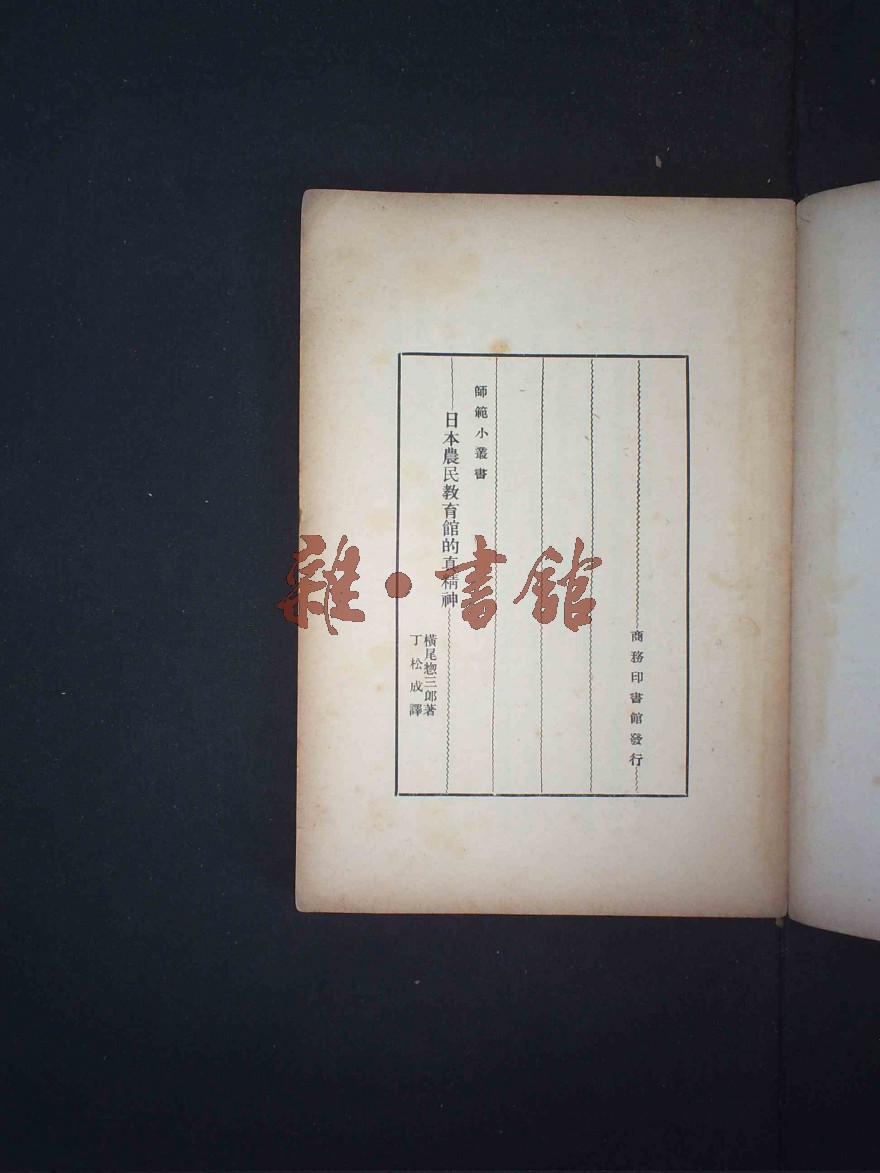 商務印書館發行
師範小叢書
日本農民教育館的真精神
橫尾惣三郎著
丁松成譯
雜·書館